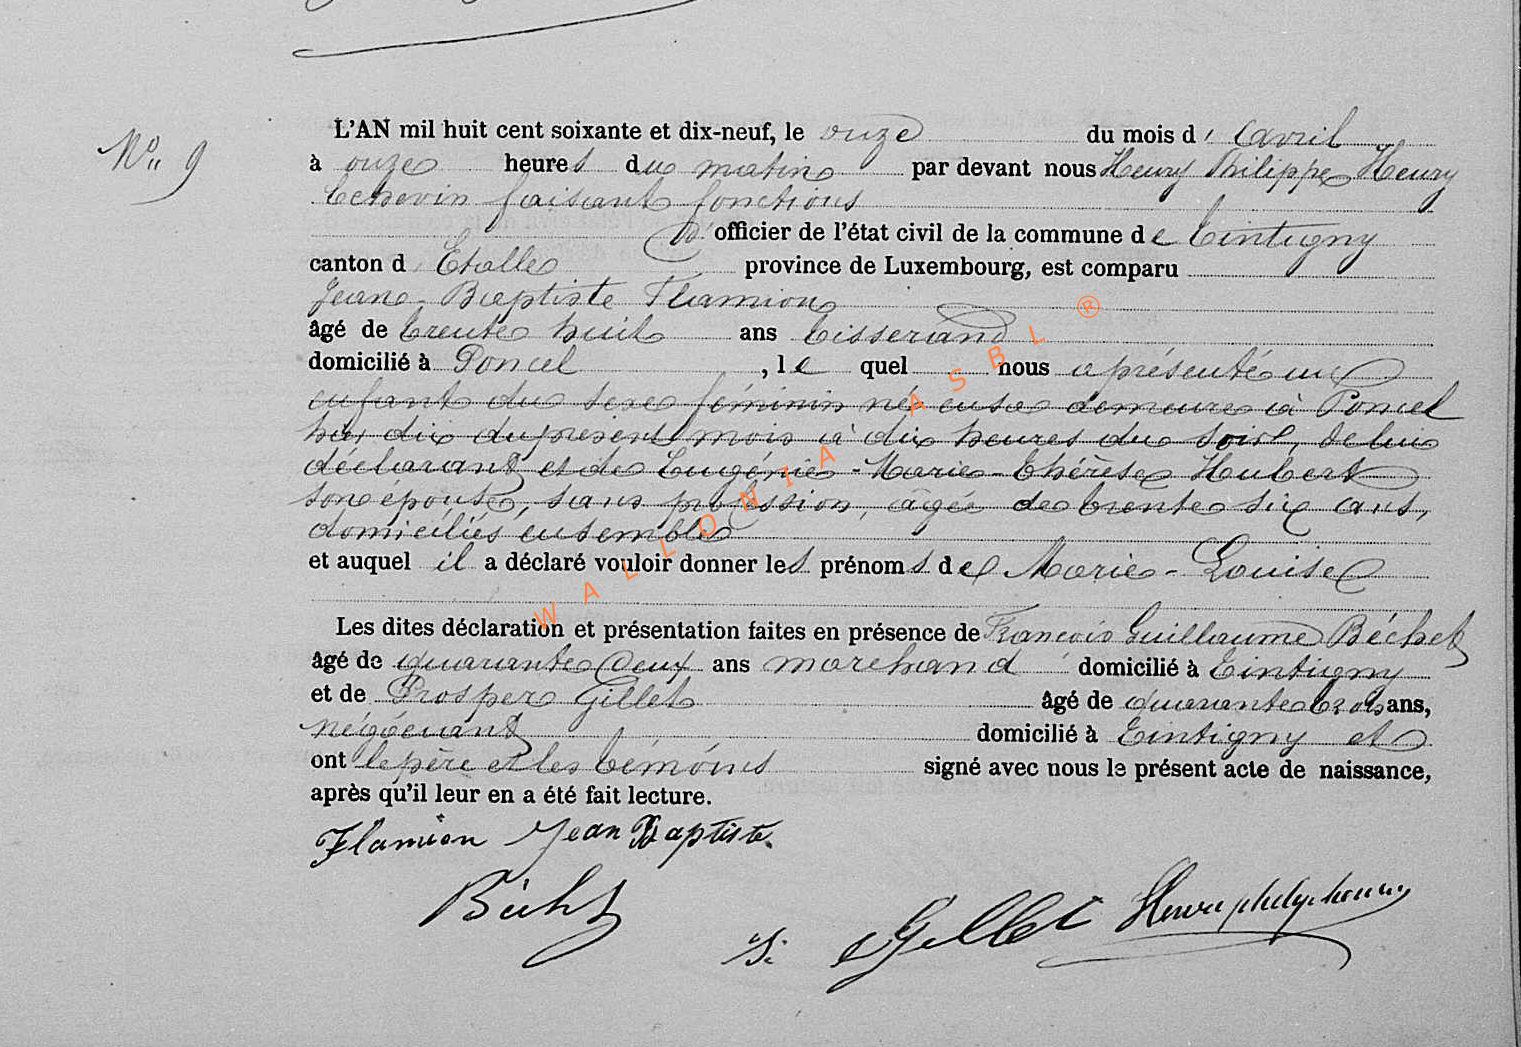 N° 9
L'AN mil huit cent soixante et dix-neuf, le onze du mois d' avril
à onze heures du matin par devant nous Henry Philippe Henry
Echevin faisant fonctions
d' officier de l'état civil de la commune de Tintigny
canton d' Etalle province de Luxembourg, est comparu
Jean-Baptiste Flamion
âgé de trente huit ans tisserand
domicilié à Poncel , le quel nous a présenté un
enfant du sexe féminin né en sa demeure à Poncel
le dix du présent mois à dix heures du soir, de lui
déclarant et de Eugénie-Marie-Thérèse Hubert
son épouse, sans profession, âgée de trente six ans,
domiciliés ensemble
et auquel il a déclaré vouloir donner les prénoms de Marie-Louise
Les dites déclaration et présentation faites en présence de François Guillaume Béchet
âgé de quarante deux ans marchand domicilié à Tintigny
et de Prosper Gillet âgé de quarante trois ans,
négociant domicilié à Tintigny et
ont le père et les témoins signé avec nous le présent acte de naissance,
après qu'il leur en a été fait lecture.
Flamion Jean Baptiste
Béchet
Gillet Henry philippe henry
WALLONIA ASBL ®